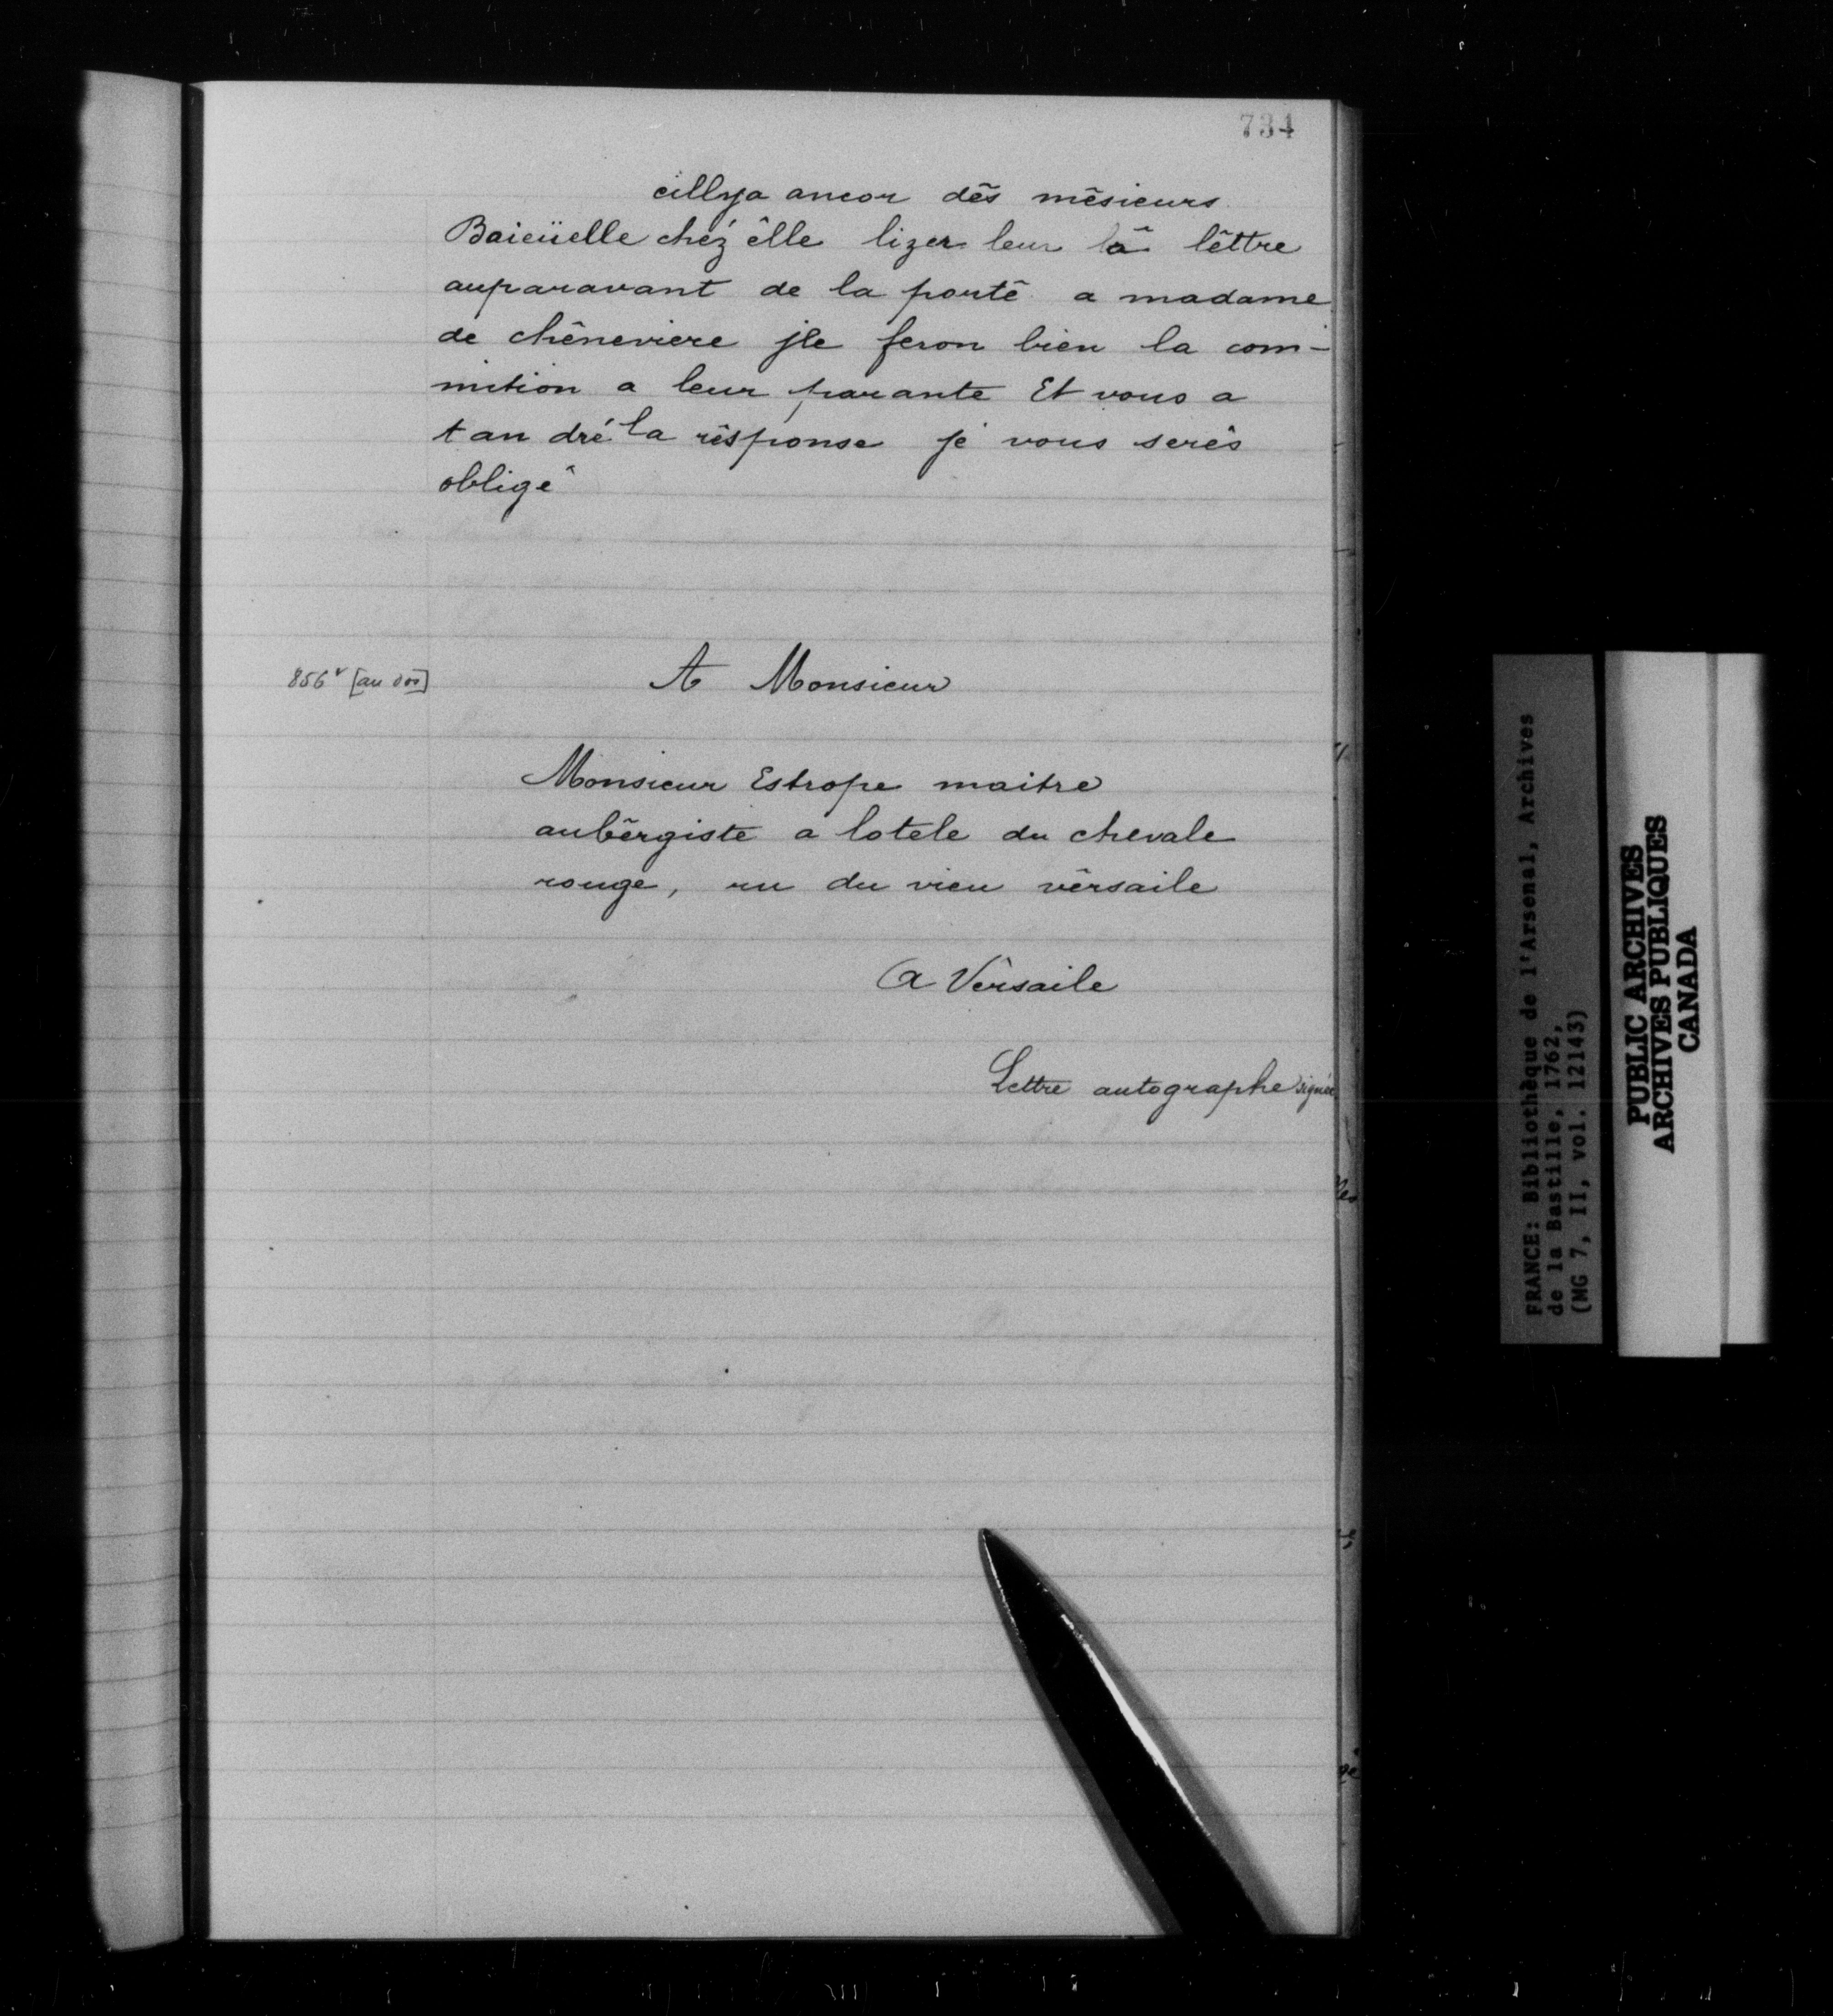 734
cillya ancor dês mêsieurs
Baieüelle chéz êlle lizer leur lâ lêttre
auparavant de la portê a madame
de chêneviere jle feron bien la com-
mition a leur parante Et vous a
tan dré la rêsponse je vous serês
obligê
856v [au dos]
A Monsieur
Monsieur Estrope maitre
aubêrgiste a lotele du chevale
rouge, ru du vieu vêrsaile
A Vêrsaile
Lettre autographe signée
FRANCE: Bibliothèque de l'Arsenal, Archives
de la Bastille, 1762,
(MG 7, II, vol. 12143)
PUBLIC ARCHIVES
ARCHIVES PUBLIQUES
CANADA